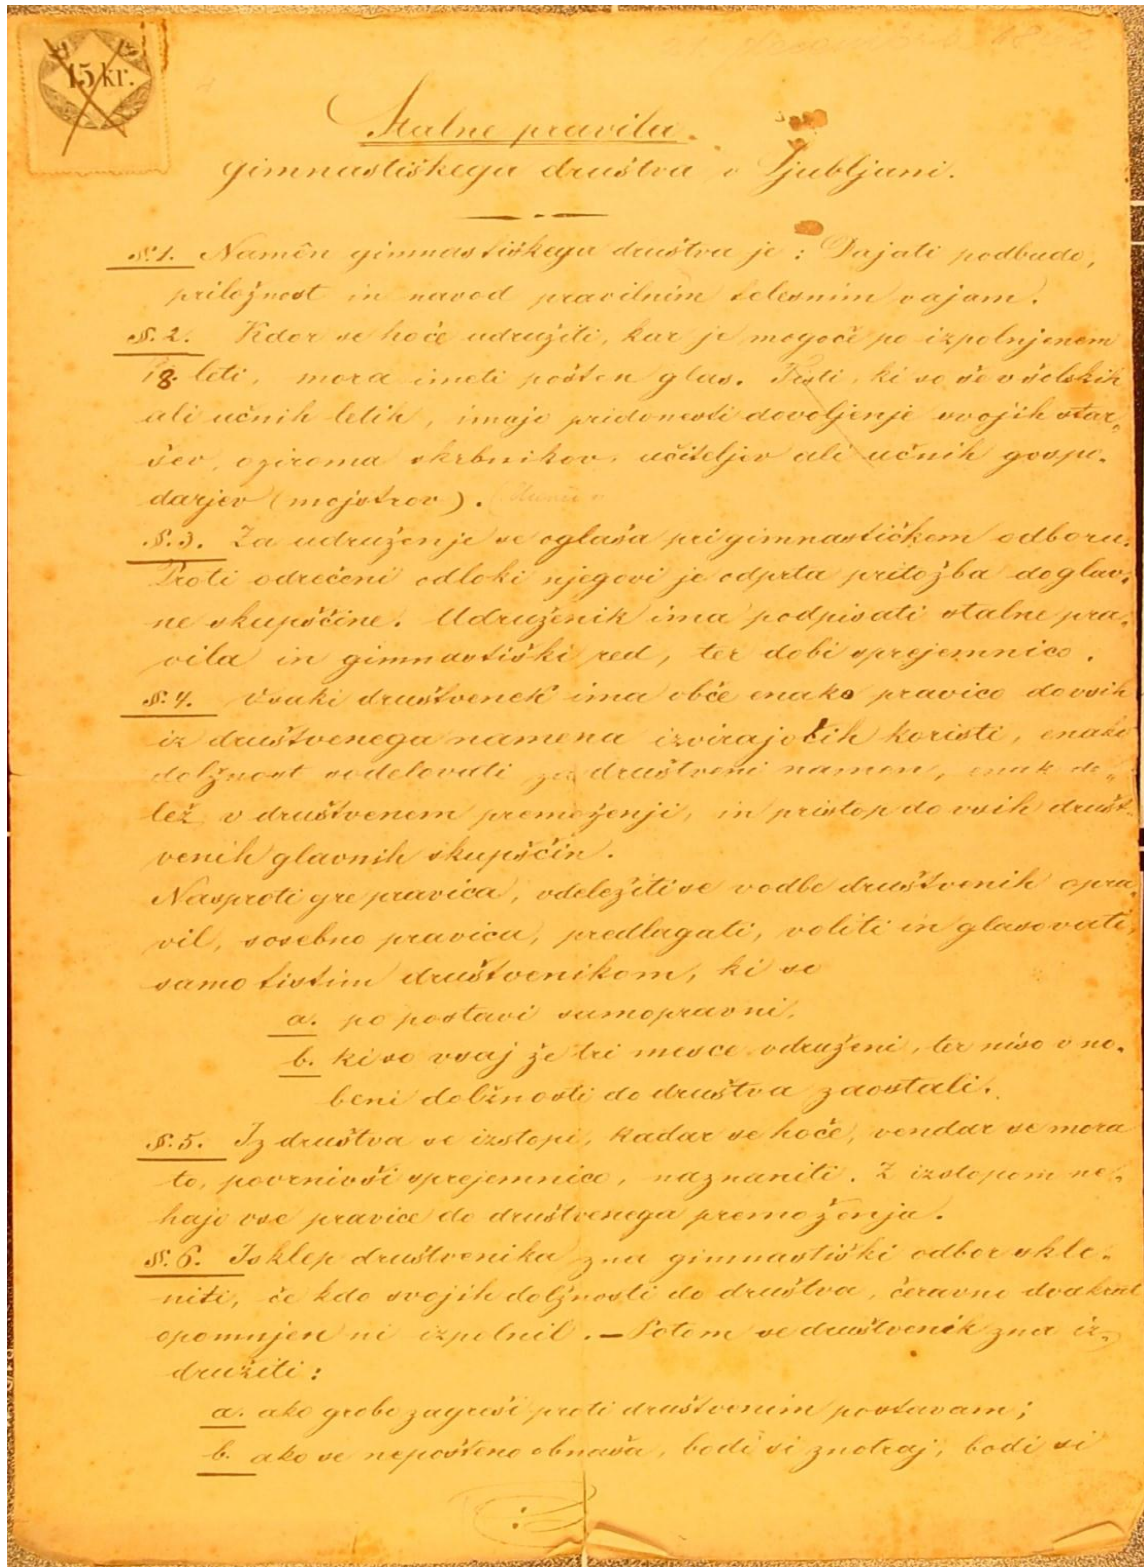 15 kr.
Stalne pravila
gimnastiškega društva v Ljubljani.
§. 1. Namên gimnastiškega društva je: Dajati podbudo,
priložnost in navod pravilnim telesnim vajam.
§. 2. Kdor se hoče udružiti, kar je mogoče po izpolnjenem
18. leti, mora imeti pošten glas. Tisti, ki so še v šolskih
ali učnih letih, imajo pridonesti dovoljenje svojih star„
šev, oziroma skrbnikov, učiteljev ali učnih gospo„
darjev (mojstrov).
§. 3. Za udruženje se oglaša pri gimnastičkem odboru.
Proti odrečeni odloki njegovi je odprta pritožba do glav„
ne skupščine. Udruženik ima podpisati stalne pra„
vila in gimnastiški red, ter dobi sprejemnico.
§. 4. Vsaki društvenek ima obče enako pravico do vsih
iz društvenega namena izvirajočih koristi, enako
dolžnost sodelovati za društveni namen, enak de„
lež v društvenem premoženji, in pristop do vsih društ„
venih glavnih skupščin.
Nasproti gre pravica, vdeležiti se vodbe društvenih opra„
vil, sosebno pravica, predlagati, voliti in glasovati,
samo tistim društvenikom, ki so
a. po postavi samopravni,
b. ki so vsaj že tri mesce vdruženi, ter niso v no„
beni dolžnosti do društva zaostali.
§. 5. Iz društva se izstopi, kadar se hoče, vendar se mora
to, povrnivši sprejemnico, naznaniti. Z izstopom ne„
hajo vse pravice do društvenega premoženja.
§. 6. Isklep društvenika zna gimnastiški odbor skle„
niti, če kdo svojih dolžnosti do društva, čeravno dvakrat
opomnjen ni izpolnil. — Potem se društvenik zna iz„
družiti:
a. ako grobo zagreši proti društvenim postavam;
b. ako se nepošteno obnaša, bodi si znotraj, bodi si